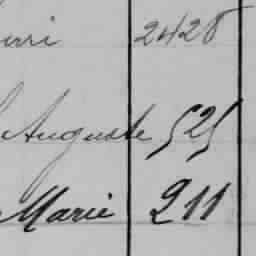 2428
Auguste 525
Marie 211